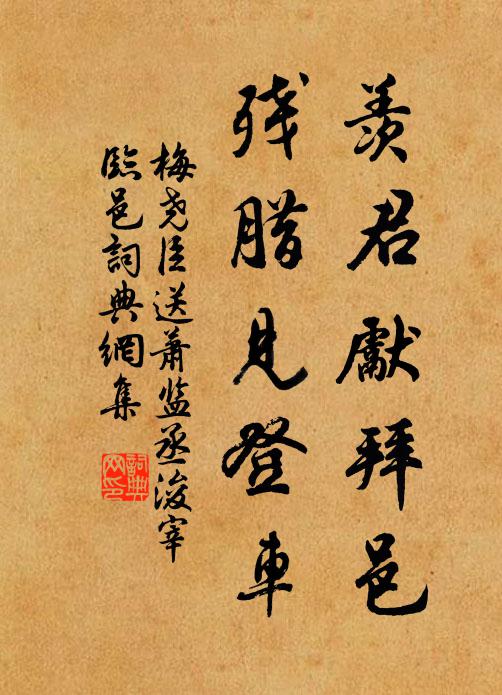 羡君獻拜邑
残腊見登車
梅尧臣送萧监丞浚宰
臨邑詞典網集
詞典网印